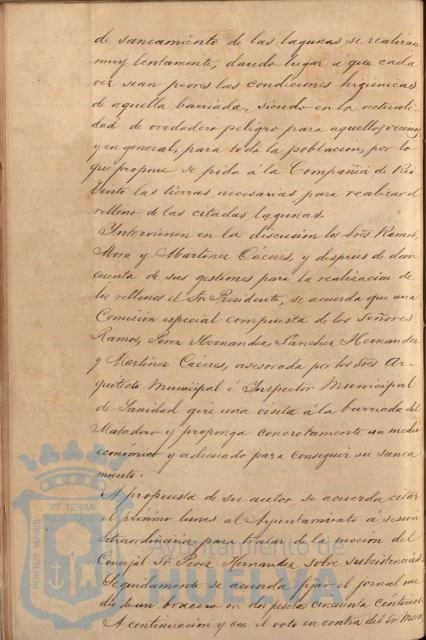 de saneamiento de las lagunas, se realizan
muy lentamente, dando lugar á que cada
vez sean peores las condiciones higiénicas
de aquella barriada, siendo en la actuali-
dad de verdadero peligro para aquellos vecinos
y en general, para toda la población, por lo
que propone se pida a la Compañía de Rio
Tinto las tierras necesarias para realizar el
relleno de las citadas lagunas.
Intervienen en la discusión los Sres Ramos,
Mora y Martinez Cáceres, y despues de dar
cuenta de sus gestiones para la realización de
los rellenos el Sr. Presidente, se acuerda que una
Comisión especial compuesta de los Señores
Ramos, Perez Hernandez, Sanchez Hernandez
y Martinez Cáceres, asesorada por los Sres Ar-
quitecto Municipal é Inspector Municipal
de Sanidad gire una visita á la barriada del
Matadero y proponga concretamente un medio
económico y adecuado para conseguir su sanea
miento.
A propuesta de su autor se acuerda citar
el próximo lunes al Ayuntamiento á sesión
extraordinaria para tratar de la moción del
Concejal Sr. Perez Hernandez sobre subsistencias.
Seguidamente se acuerda fijar el jornal me
dio de un bracero en dos pesetas cincuenta céntimos.
A continuación y con el voto en contra del Sr. Mora,
ET TERRÆ
PORTUS MARIS
Ayuntamiento de
HUELVA